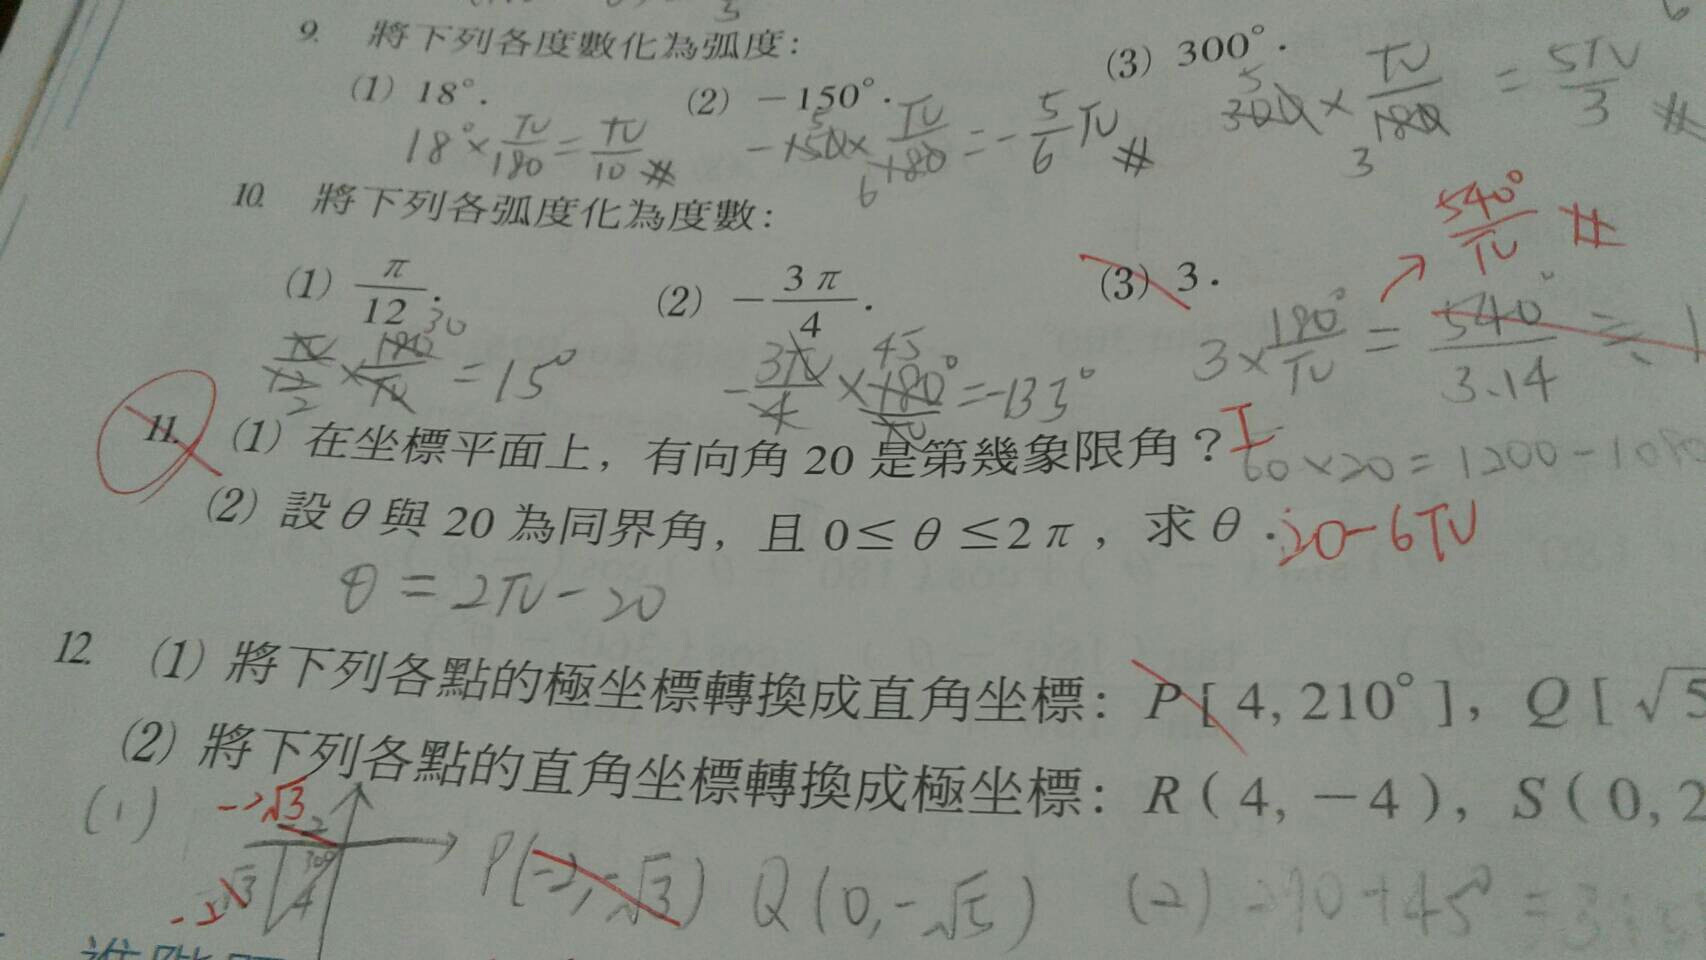 9. 將下列各度數化為弧度：
(1) 18°. (2) －150°. (3) 300°.
18° × π/180 = π/10 #
-150 × π/180 = -5/6 π #
300 × π/180 = 5π/3 #
10. 將下列各弧度化為度數：
(1) π/12. (2) －3π/4. (3) 3.
π/12 × 180/π = 15°
-3π/4 × 180°/π = -133°
3 × 180°/π = 540°/3.14
540°/π #
11. (1) 在坐標平面上，有向角 20 是第幾象限角？ I
60 × 20 = 1200 - 108
(2) 設 θ 與 20 為同界角，且 0≤ θ ≤2π，求 θ. 20-6π
θ = 2π - 20
12. (1) 將下列各點的極坐標轉換成直角坐標：P [ 4, 210° ]，Q [ √5
(2) 將下列各點的直角坐標轉換成極坐標：R ( 4, －4 )，S ( 0, 2
(1) P(-2, -√3) Q(0, -√5) (2) 270+45° =